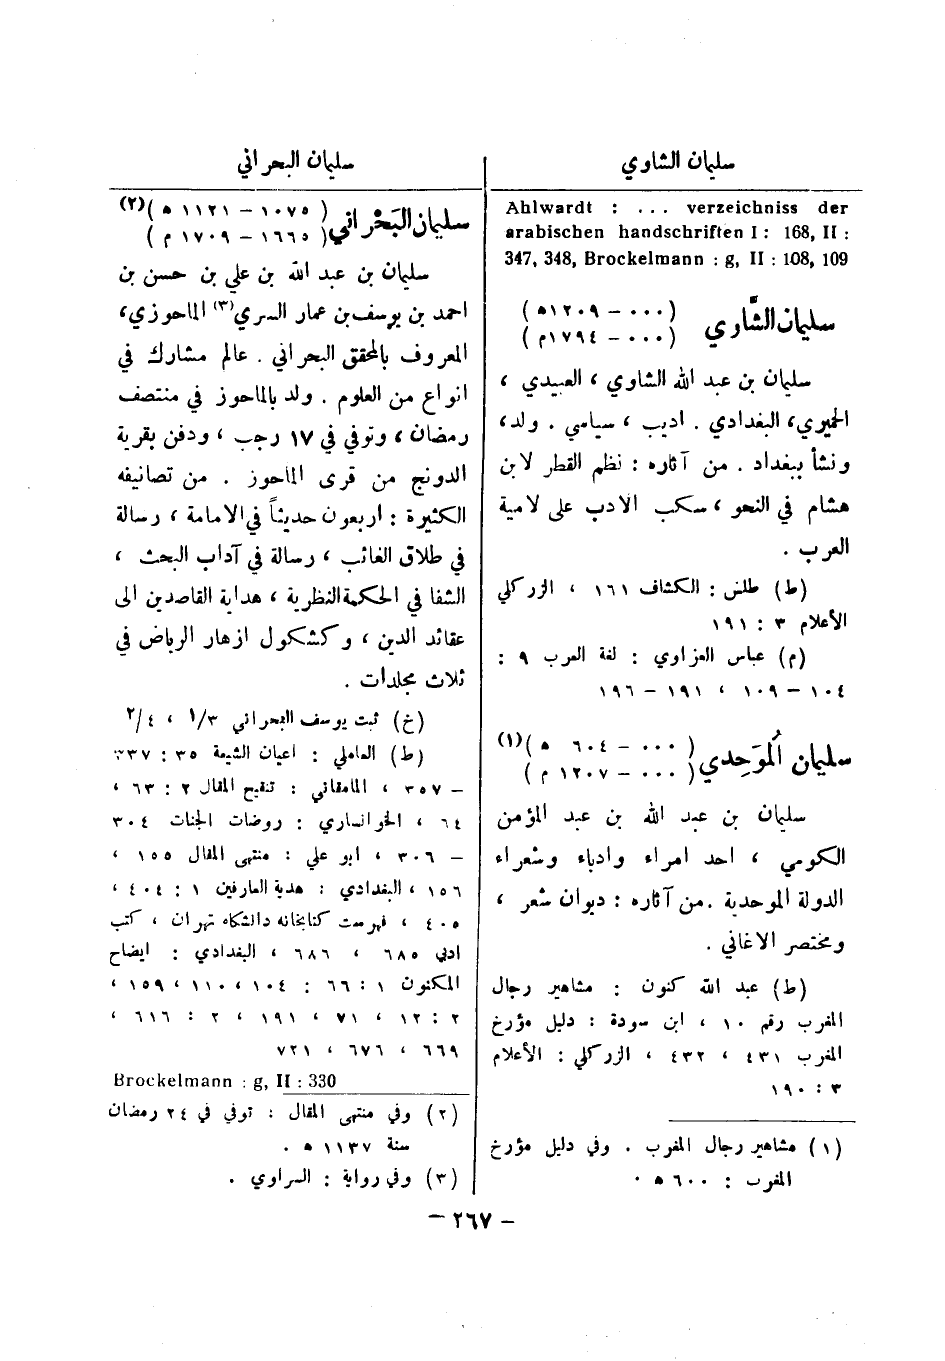 سليمان الشاوي
Ahlwardt : ... verzeichniss der
arabischen handschriften I : 168, II :
347, 348, Brockelmann : g, II : 108, 109
سليمان الشَّاوي (٠٠٠ – ١٢٠٩ ه)
(٠٠٠ – ١٧٩٤ م)
سليمان بن عبد الله الشاوي ، العبيدي ،
الحميري، البغدادي . اديب ، سياسي . ولد،
ونشأ ببغداد . من آثاره : نظم القطر لابن
هشام في النحو ، سكب الادب على لامية
العرب .
(ط) طلس : الكشاف ١٦١ ، الزركلي
الأعلام ٣ : ١٩١
(م) عباس العزاوي : لغة العرب ٩ :
١٠٤ – ١٠٩ ، ١٩١ – ١٩٦
سليمان المُوَحِدي (٠٠٠ – ٦٠٤ ه)(١)
(٠٠٠ – ١٢٠٧ م)
سليمان بن عبد الله بن عبد المؤمن
الكومي ، احد امراء وادباء وشعراء
الدولة الموحدية . من آثاره : ديوان شعر ،
ومختصر الاغاني .
(ط) عبد الله كنون : مشاهير رجال
المغرب رقم ١٠ ، ابن سودة : دليل مؤرخ
المغرب ٤٣١ ، ٤٣٢ ، الزركلي : الأعلام
٣ : ١٩٠
(١) مشاهير رجال المغرب . وفي دليل مؤرخ
المغرب : ٦٠٠ ه .
سليمان البحراني
سليمان البَحْراني (١٠٧٥ – ١١٢١ ه)(٢)
(١٦٦٥ – ١٧٠٩ م)
سليمان بن عبد الله بن علي بن حسن بن
احمد بن يوسف بن عمار السري(٣) الماحوزي،
المعروف بالمحقق البحراني . عالم مشارك في
انواع من العلوم . ولد بالماحوز في منتصف
رمضان ، وتوفي في ١٧ رجب ، ودفن بقرية
الدونج من قرى الماحوز . من تصانيفه
الكثيرة : اربعون حديثاً في الامامة ، رسالة
في طلاق الغائب ، رسالة في آداب البحث ،
الشفا في الحكمة النظرية ، هداية القاصدين الى
عقائد الدين ، وكشكول ازهار الرياض في
ثلاث مجلدات .
(خ) ثبت يوسف البحراني ١/٣ ، ٢/٤
(ط) العاملي : اعيان الشيعة ٣٥ : ٣٣٧
– ٣٥٧ ، المامقاني : تنقيح المقال ٢ : ٦٣ ،
٦٤ ، الخوانساري : روضات الجنات ٣٠٤
– ٣٠٦ ، ابو علي : منتهى المقال ١٥٥ ،
١٥٦ ، البغدادي : هدية العارفين ١ : ٤٠٤ ،
٤٠٥ ، فهرست كتابخانه دانشكاه تهران ، كتب
ادبي ٦٨٥ ، ٦٨٦ ، البغدادي : ايضاح
المكنون ١ : ٦٦ : ١٠٤ ، ١١٠ ، ١٥٩ ،
٢ : ١٢ ، ٧١ ، ١٩١ ، ٢ : ٦١٦ ،
٦٦٩ ، ٦٧٦ ، ٧٢١
Brockelmann : g, II : 330
(٢) وفي منتهى المقال : توفي في ٢٤ رمضان
سنة ١١٣٧ ه .
(٣) وفي رواية : السراوي .
– ٢٦٧ –